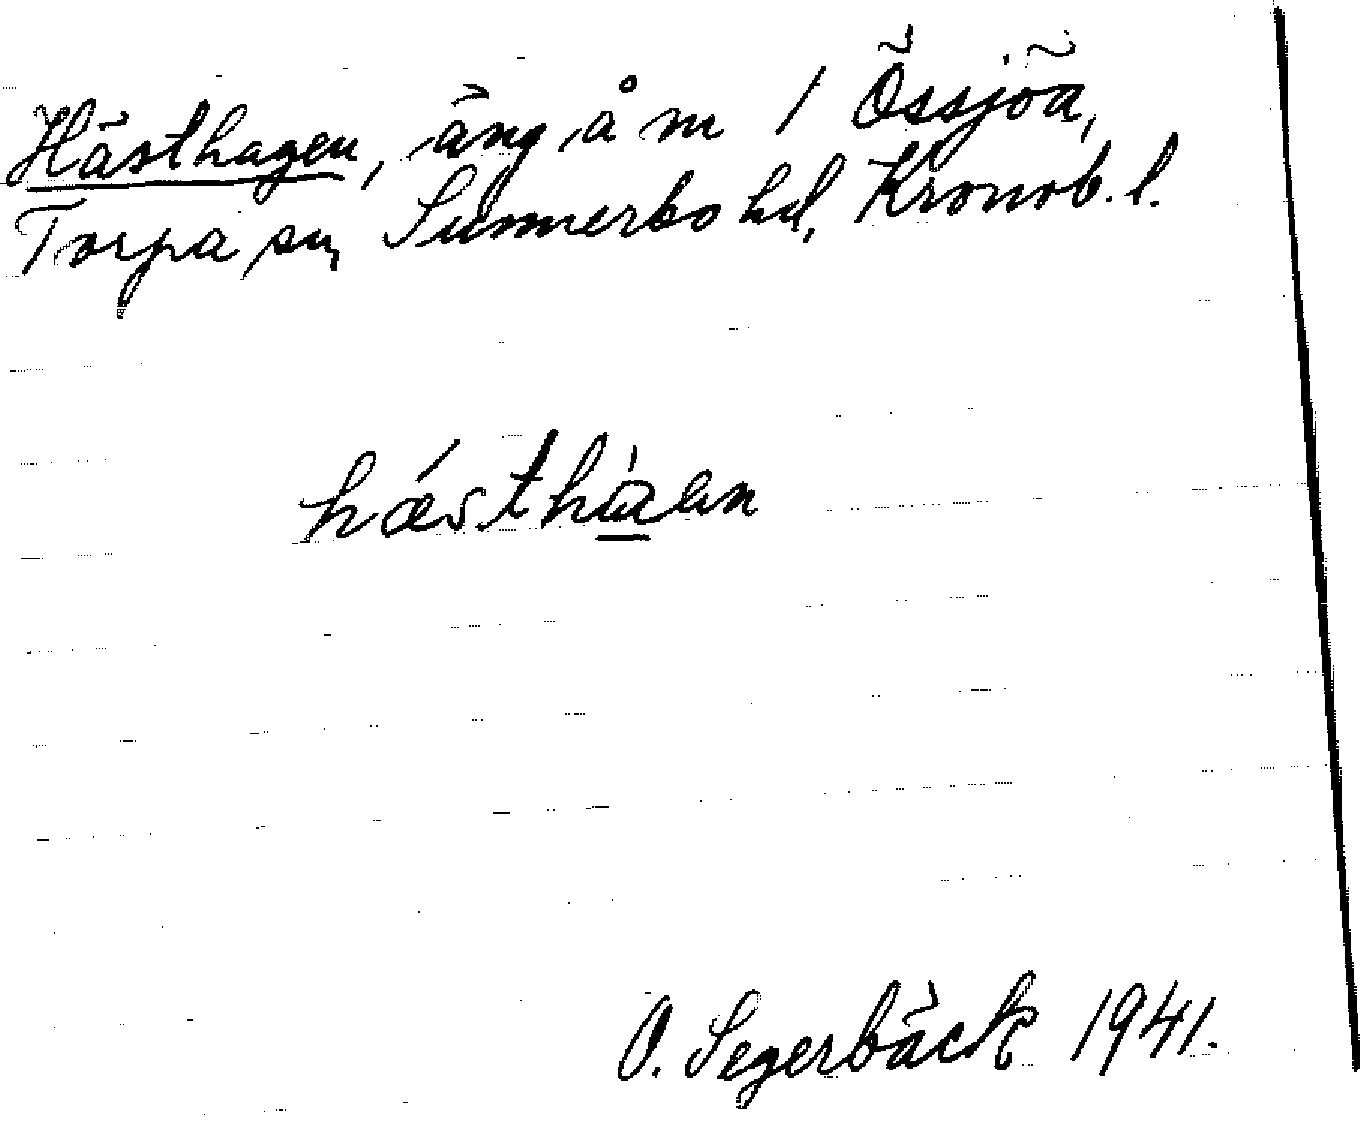 Hästhagen, äng å nr 1 Össjöa,
Torpa sn, Sunnerbo hd, Kronob. l.
hǽsthàan
O. Segerbäck 1941.